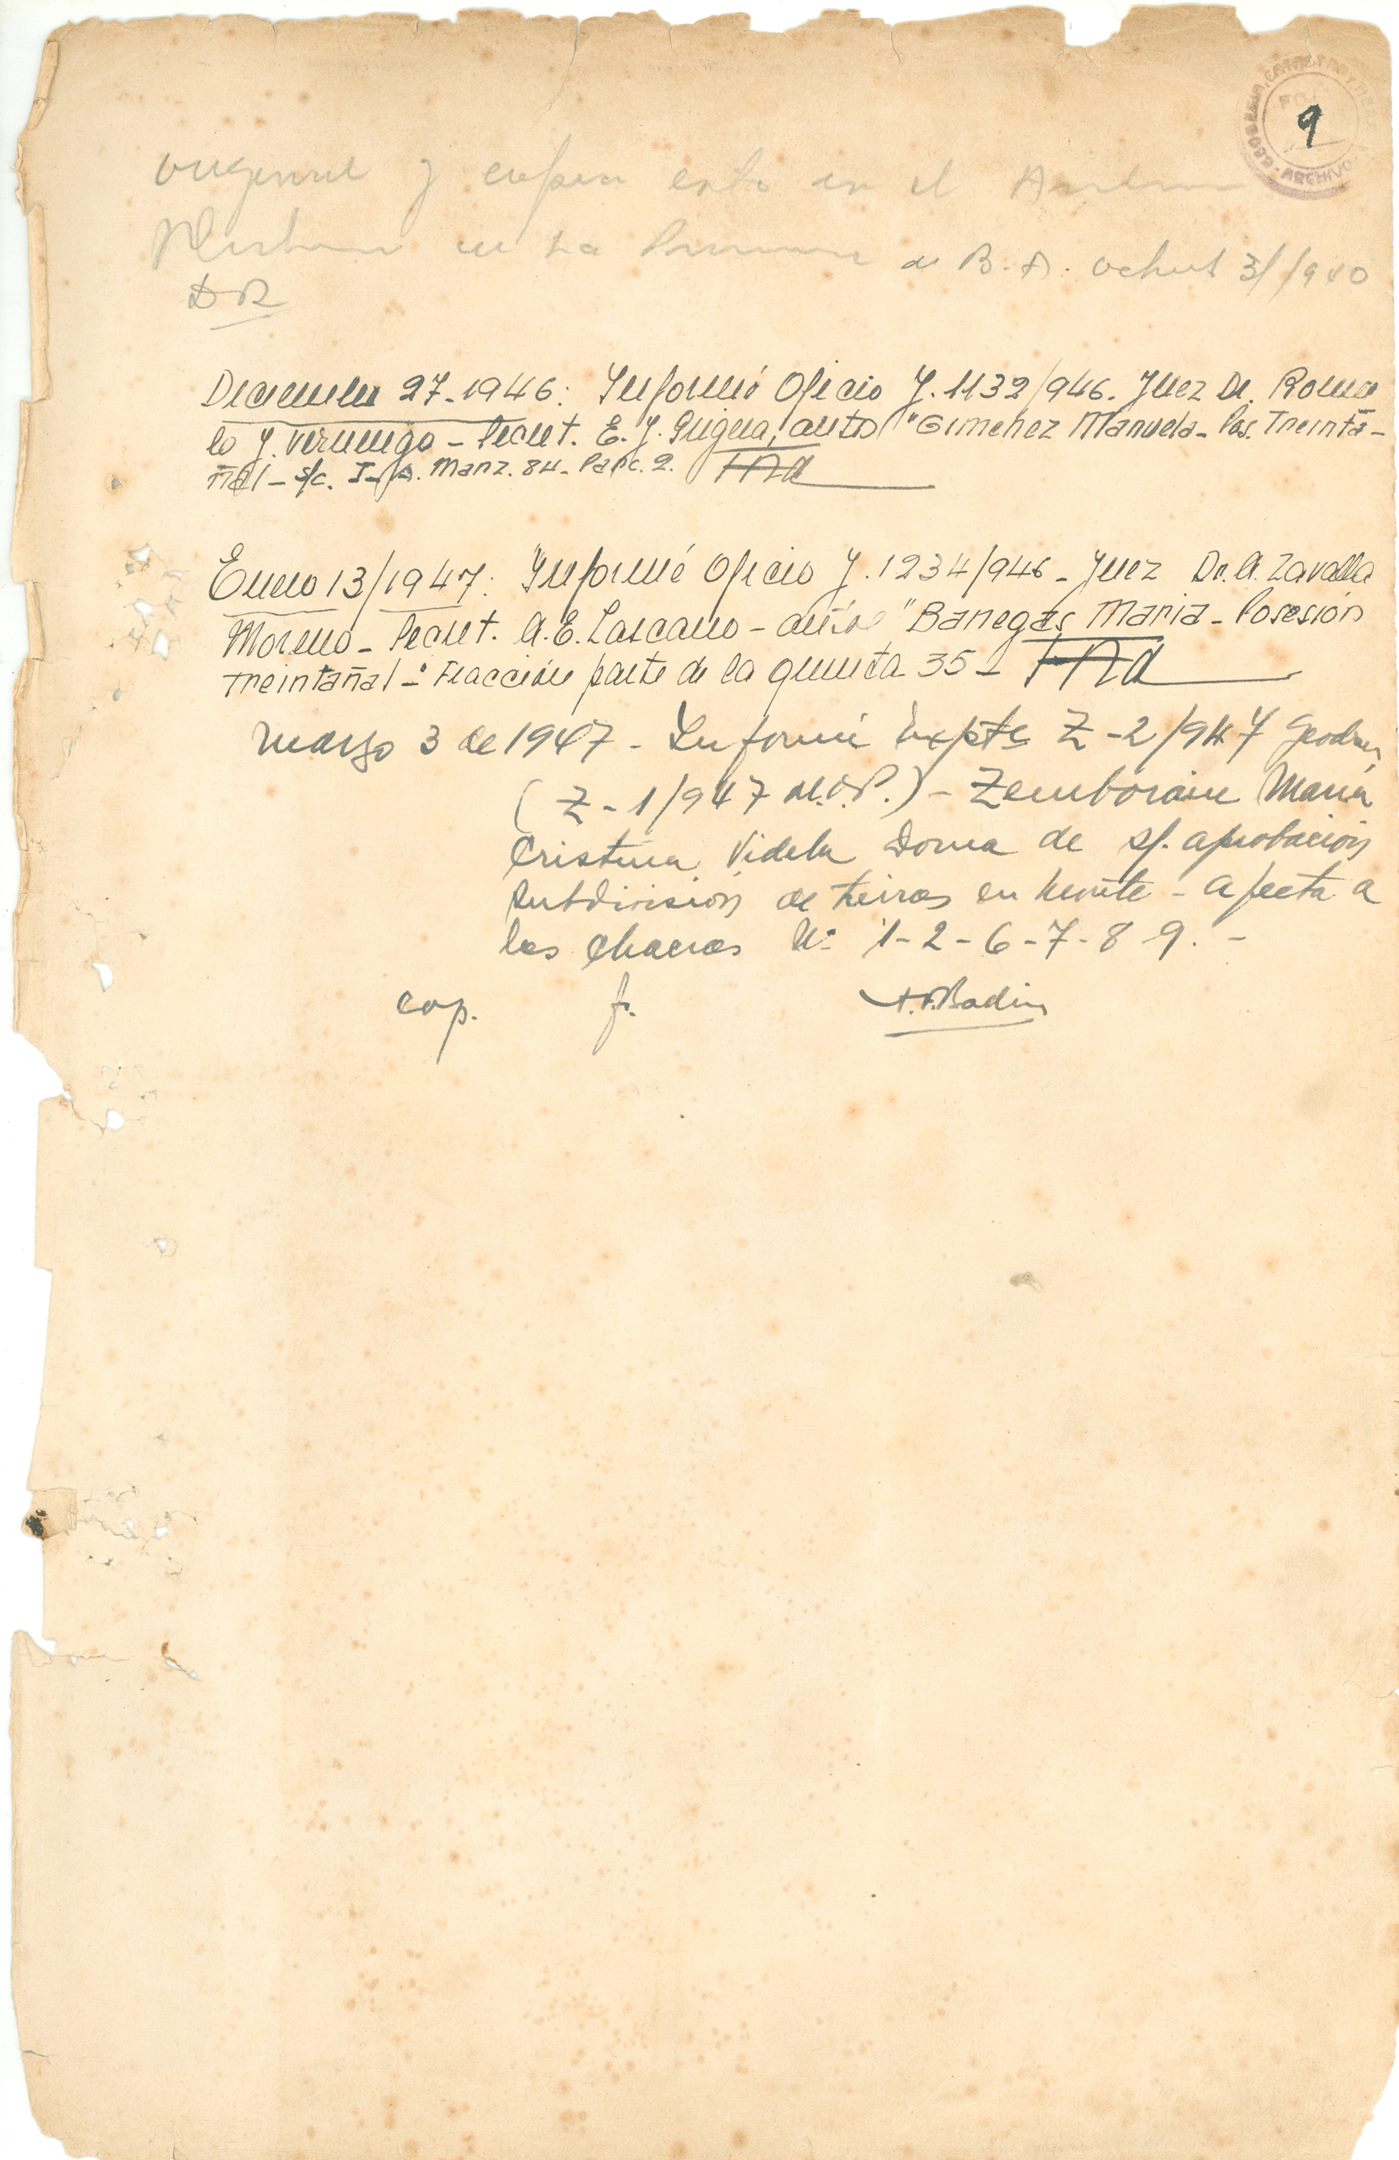 9
ARCHIVO
original y copia esta en el Archivo
en La
de B. A. octubre 31/940
DR
Diciembre 27-1946: Informó Oficio J. 1132/946. Juez Dr. Romu
lo J. Verningo - Secret. E. J. autos "Gimenez Manuela - Pos. Treinta-
ñal - s/c. I-A. Manz. 84 - Parc. 2.
Enero 13/1947: Informé Oficio J. 1234/946 - Juez Dr. A. Zavalla
Moreno - Secret. A. E. Lascano - autos "Banegas Maria - Posesión
Treintañal -" Fracción parte de la quinta 35 -
Marzo 3 de 1947 - Informé Expte Z-2/947 Geodes.
(Z-1/947 M.O.P.) - Zemborain María
Cristina Videla Dorna de s/. aprobación
subdivisión de tierras en Monte - afecta a
las chacras Nº 1-2-6-7-8-9. -
cop. f.